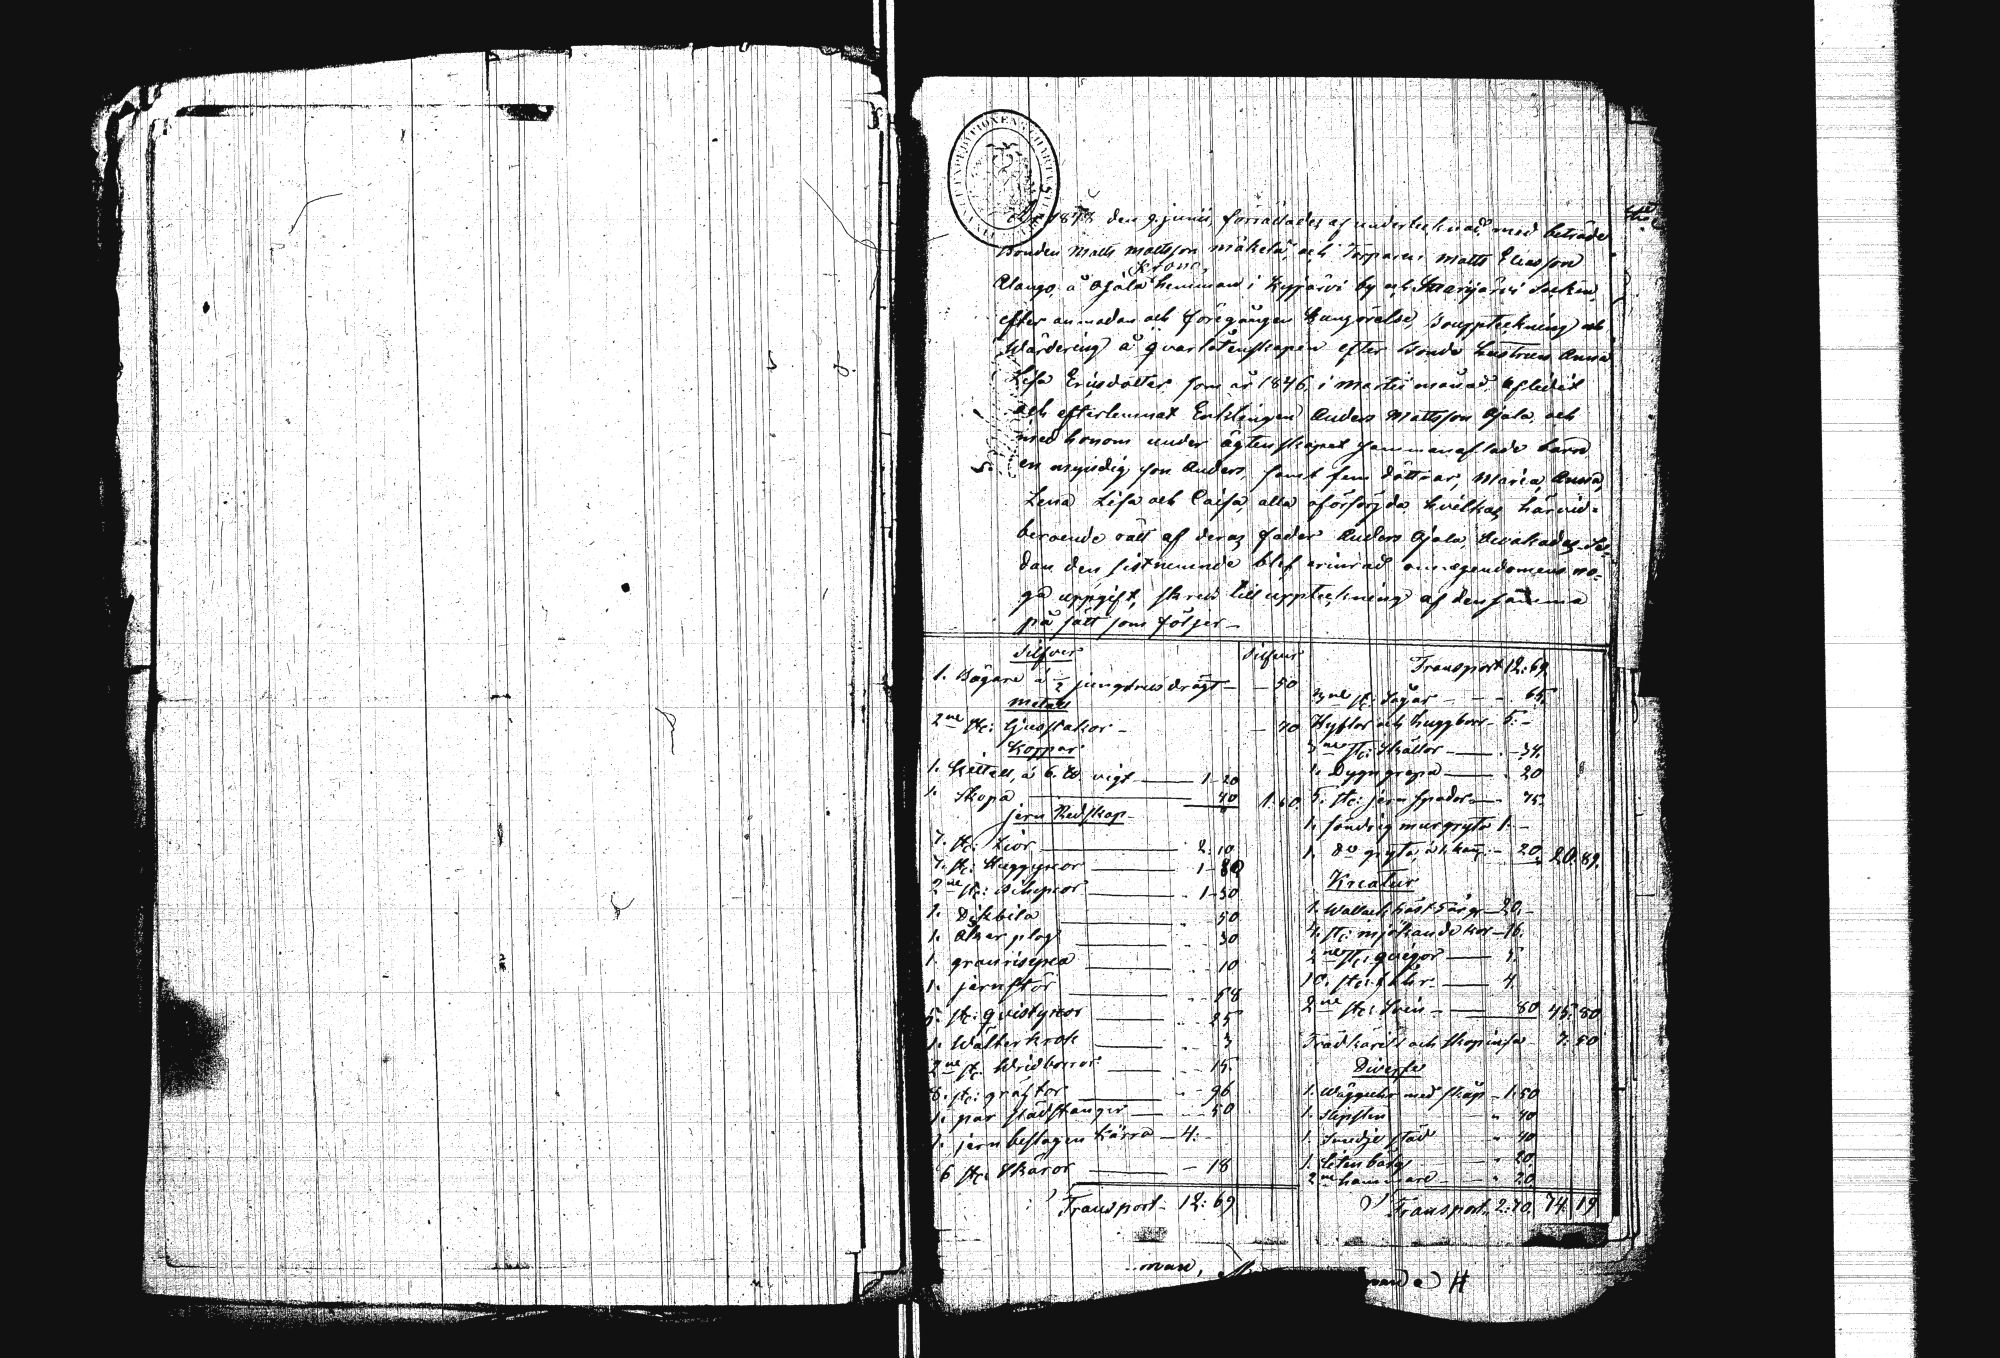 År 1848 den 9 junii, förrättades af undertecknad med beträde
Bonden Matts Mattsson Mäkelä, och Torparen Matts Eliasson
Krono
Alango, å Ojala hemman i Kyjärvi by och Saarijärvi Socken,
efter anmodan och föregången Kungörelse, Bouppteckning och
Wärdering å qvarlåtenskapen efter Bonde hustrun Anna
Lisa Ericsdotter som år 1846 i martii månad aflidit
och efterlemnat Enklingen Anders Mattsson Ojala, och
med honom under ägtenskapet sammanaflade barn
en myndig son Anders, samt fem döttrar, Maria, Anna,
Lena Lisa och Caisa, alla oförsörgda hvilkas härvid-
beroende rätt af deras fader Anders Ojala, bevakades. Se-
dan den sistnemnde blef erinrad om egendomens no-
ga uppgift, skreds till uppteckning af densamma
på sätt som följer —
Silfver Silfver
1. Bägare å ½ jungfrus drägt — — 50
Metall
2ne st: Ljusstakar — — 70
Koppar
1. Kittell, å 6. ℔ vigt — 1-20
1. Skopa — 40 1.60
jern Redskap
7. st: Liar — 2.10
7. st: Huggyxor — 1-80
2ne st: — 1-30
1. Dikbila — 50
1. Åker plog — 30
1. granrisyxa — 10
1. jernstör — 58
5. st: qvistyxor — 25
1. Wälter krok — 3
2ne st: Wridborrar — 15.
8. st: — 96
1. par städstänger — 50
1. jernbeslagen Kärra — 4: -
6 st: Skäror — 18
Transport. 12: 69
Transport 12: 69.
3ne st: Sågar — 65.
Hyflor och huggborr. 5: -
st: Skällor — 34.
1. Dyngrepa — 20
5. st: jern spadar — 75.
1. söndrig murgryta 1: -
1. do gryta, å 1. kan: — 20. 20.89.
Kreatur
1. Wallack häst 5 år gr — 20. -
4. st: mjölkande kor — 16.
2ne st: qvigor — 5.
10. st: får. — 4.
2ne st: Svin — 80 45.80
Trädkärill och skopinsa 7.50
Diverse
1. Wägguhr med skåp — 1.50
1. Slipsten " 40
1. Smedje städ " 40
1. " 20
2ne hammare — " 20
Transport. 2.70. 74.19